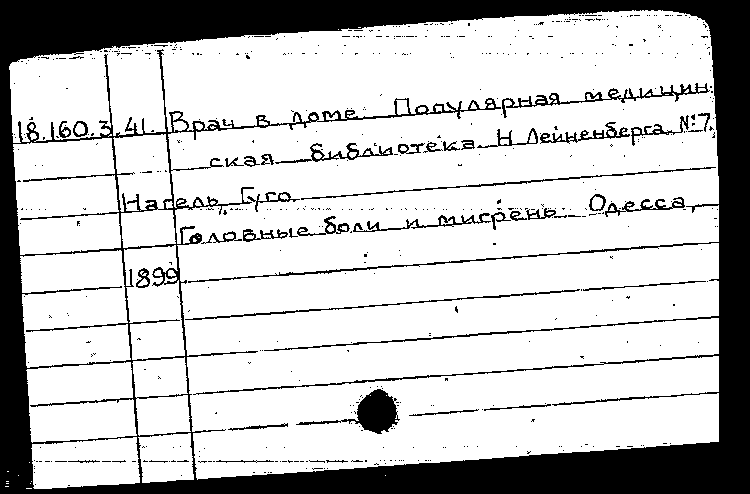 18.160.3.41. Врач в доме. Популярная медицин
ская библиотека Н Лейненберга. №7.
Нагель, Гуго
Головные боли и мигрень. Одесса,
1899.